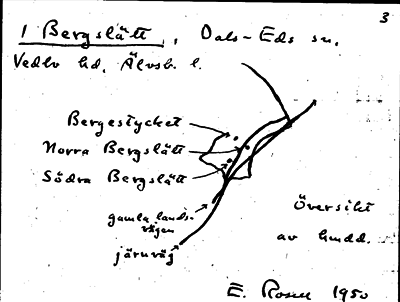 3
1 Bergslätt, Dals-Eds sn,
Vedbo hd, Älvsb. l.
Bergestycket
Norra Bergslätt
Södra Bergslätt
gamla lands-
vägen
järnväg
Översikt
av hmdd.
E. Rosell 1950